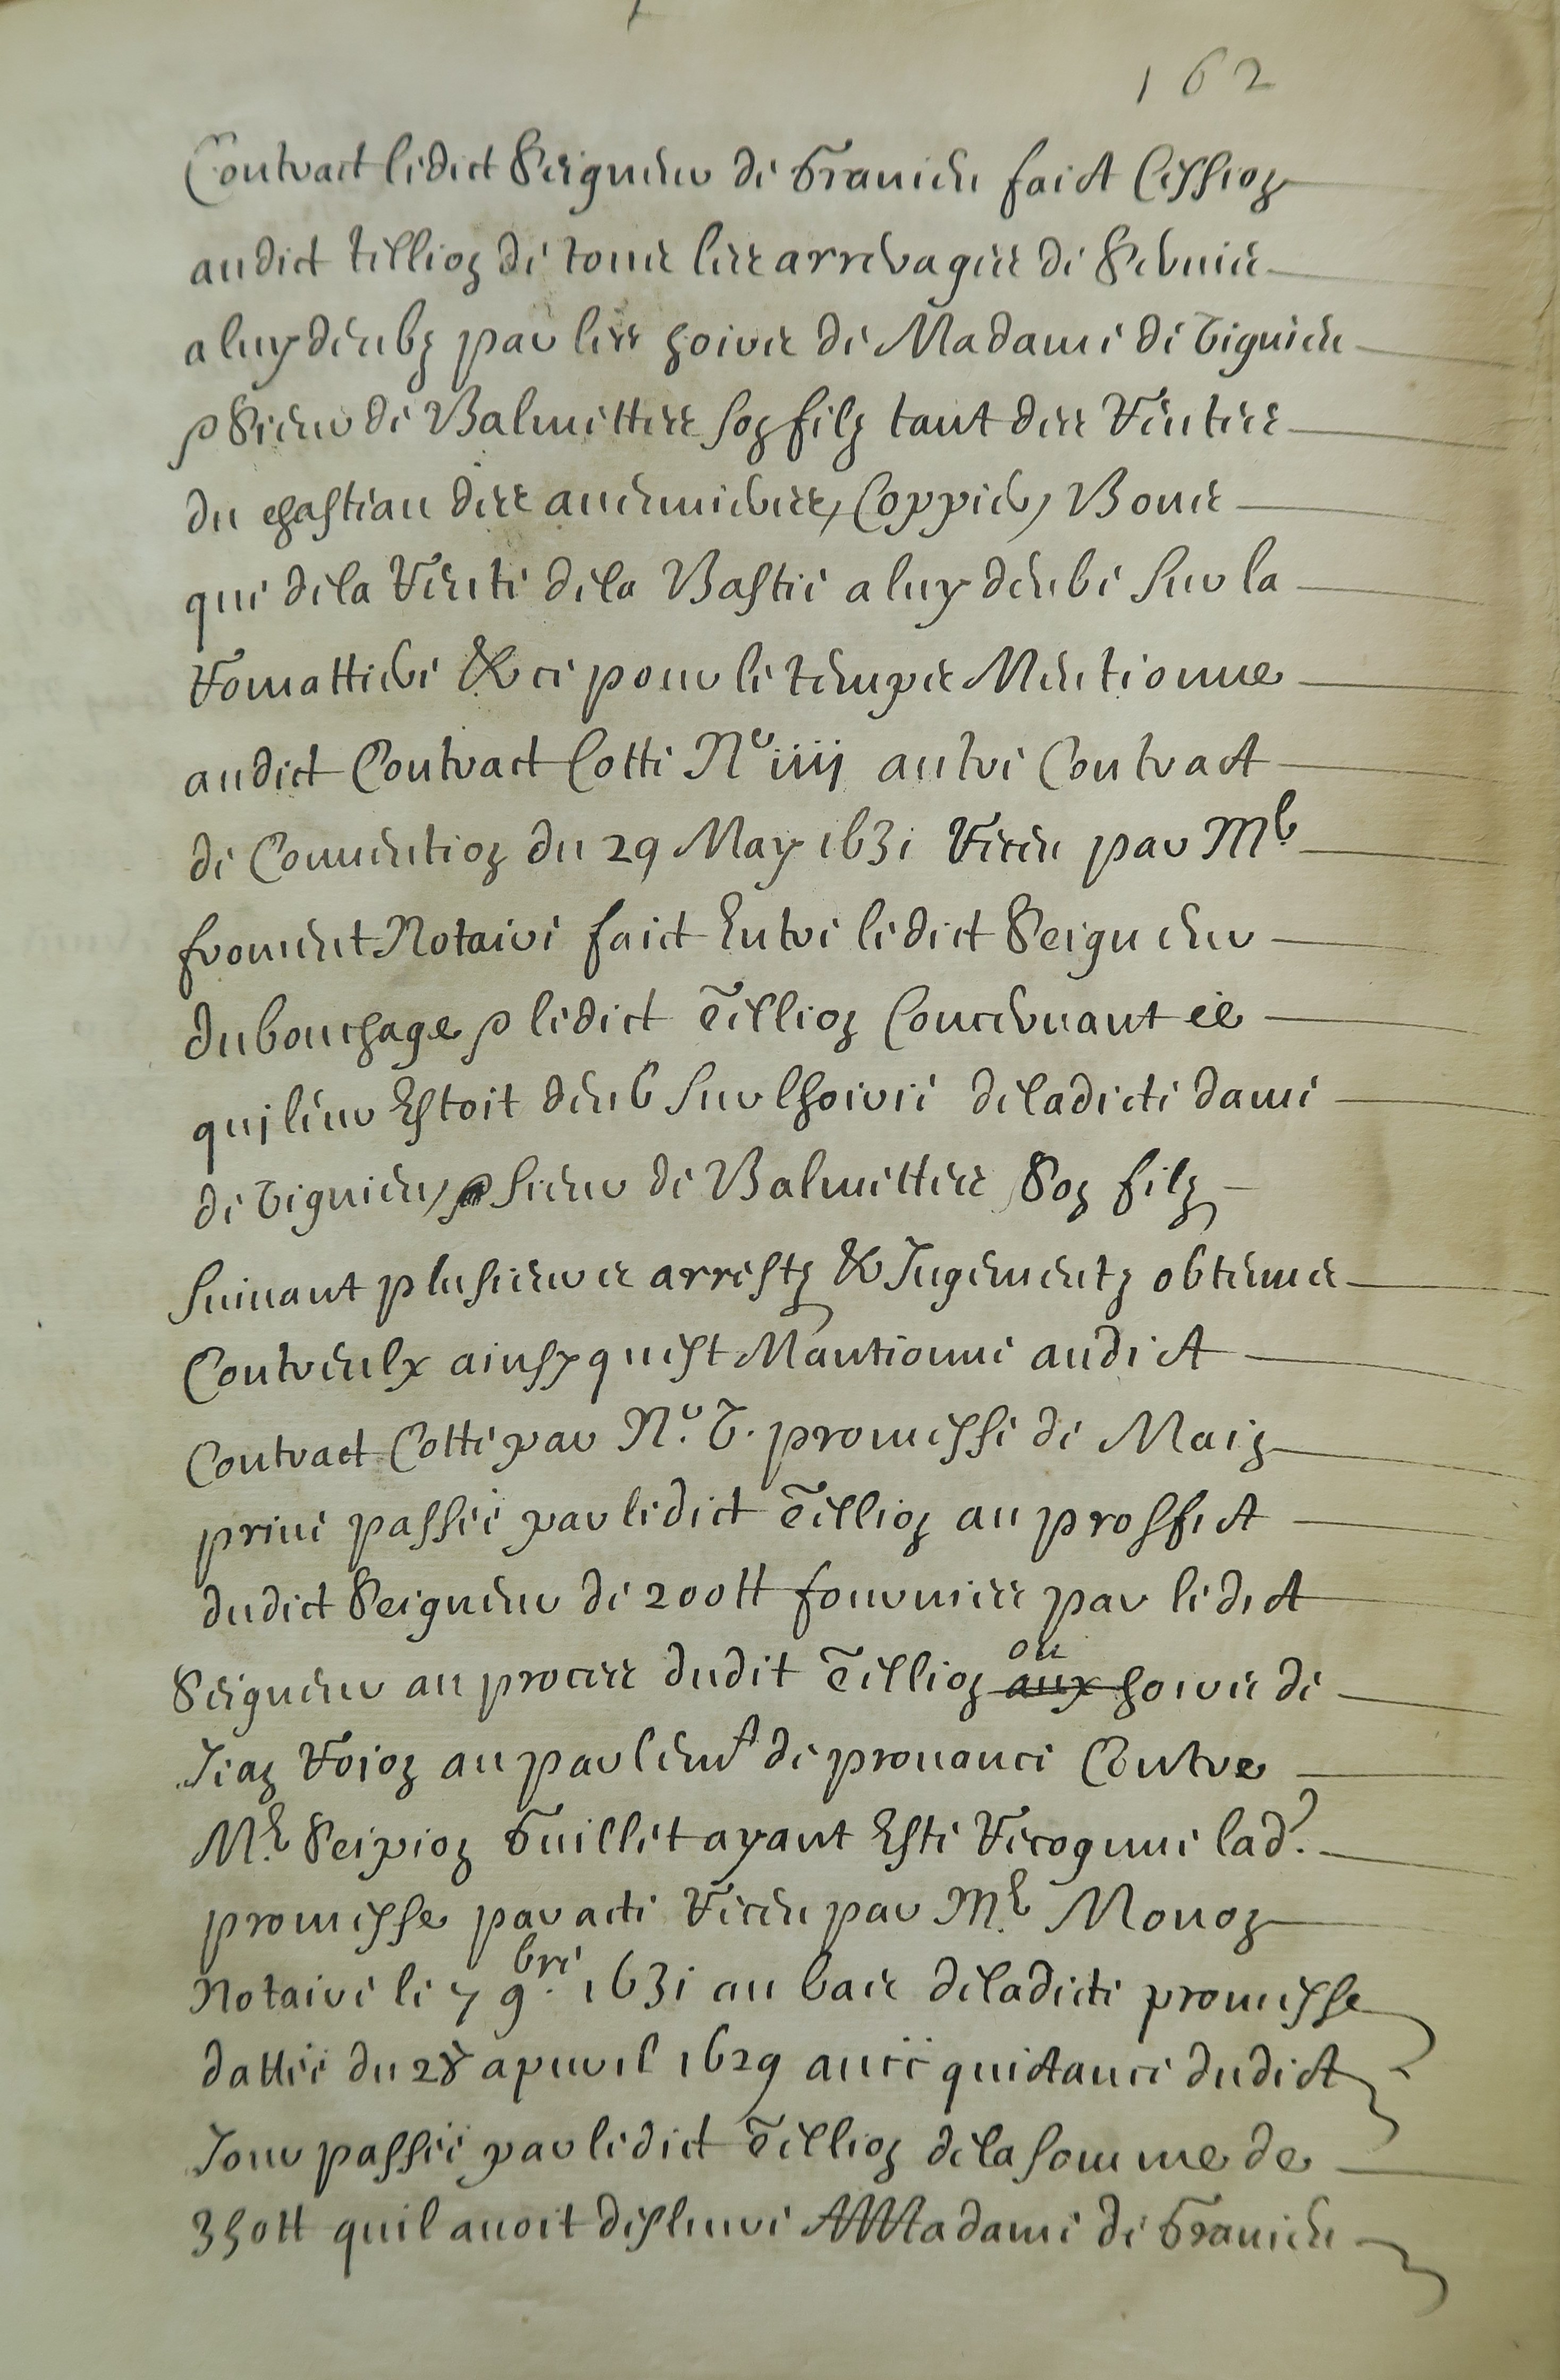 162
Contract ledict Seigneur de Granieu faict Cession
audict tellion de tous les arrerages de Servis
a luy deubz par les hoirs de Madame de Vignieu
& Sieur de Valmettes son filz tant des Rentes
du chasteau des auenieres, Coppier, Bous
que de la Rente de la Bastie a luy deube sur la
Romattiere & ce pour le temps Mentionne
audict Contract Cotté N.º iiij autre Contract
de Conuention du 29 May 1631 Receu par Mr
froment Notaire faict Entre ledict Seigneur
du bouchage & ledict Tellion Concernant ce
quj leur Estoit deub sur lhoirie de ladicte dame
de Vignieu, & sieur de Valmettes Son filz
suiuant plusieurs arrestz & Jugementz obtenus
Contre eulx ainsy quest Mantionné audict
Contract Cotté par N.º V. promesse de Main
priué passée par ledict Tellion au proffict
dudict Seigneur de 200tt fournies par ledict
Seigneur au proces dudit Tellion aux ou hoirs de
Jean Roion au parlemt de prouance Contre
Mr Scipion Guillet ayant Esté Recognue lad.
promesse par acte Receu par Mr Monon
Notaire le 7 9.bre 1631 au bas de ladicte promesse
dattée du 28 apuril 1629 auec quictance dudict
Jour passée par ledict Tellion de la somme de
350tt quil auoit desliuré A Madame de Granieu